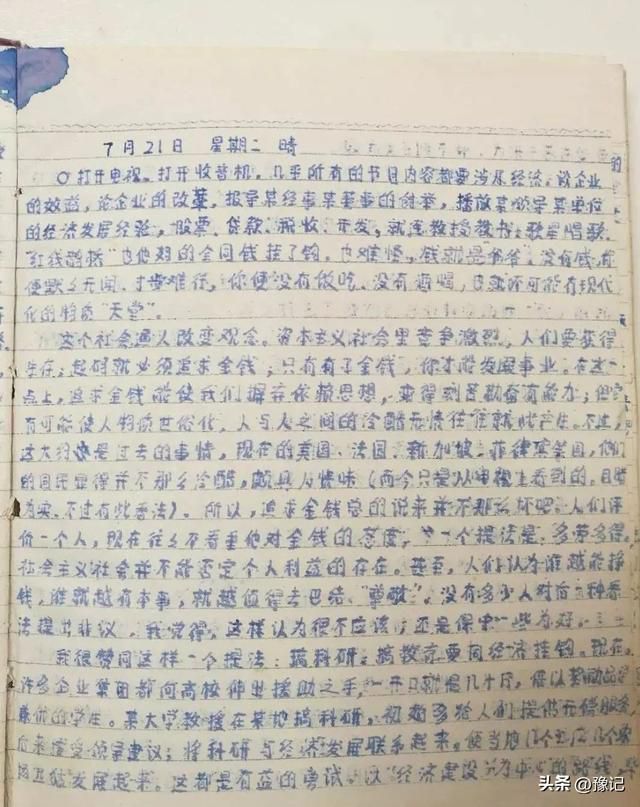 7月21日 星期二 晴
打开电视。打开收音机。几乎所有的节目内容都要涉及经济。论企业
的效益,论企业的改革。报导某经事某董事的创举,播放某领导某单位
的经济发展经验,股票、贷款、税收、开发,就连教授教书、歌星唱歌、
"红线鹊桥"也他妈的全同钱挂了钩。也难怪,钱就是"爷爷",没有钱
便寸步难行,你便没有做吃、没有酒喝,也就不可能有现代
化的物质"天堂"。
这个社会逼人改变观念。资本主义社会里竞争激烈。人们要获得
生存;起码就必须追求金钱;只有有了金钱,你才能发展事业。在这一
点上,追求金钱能使我们摒弃依赖思想,变得刻苦勤奋有能力;但
有可能使人物质世俗化。人与人之间的冷酷无情往往就此产生。不过,
这大约也是过去的事情,现在的美国、法国、新加坡、菲律宾等国,他们
的国民显得并不那么冷酷,颇具人情味(而今只是从电视上看到的。目睹
为实。不过有些看法)。所以,追求金钱总的说来并不那么坏吧。人们评
价一个人,现在往往不看重他对金钱的态度,有一个提法是:多劳多得。
社会主义社会并不能否定个人利益的存在。甚至,人们认为谁越能挣
钱,谁就越有本事,就越值得去巴结、"尊敬"。没有多少人对后一种看
法提出非议,我觉得,这样认为很不应该;还是保守一些为好。
我很赞同这样一个提法:搞科研、搞教育要同经济挂钩。现在,
许多企业集团都向高校伸出援助之手,一开口就是几十万,借以奖励品学
兼优的学生。某大学教授在某地搞科研,初始多给人们提供无偿服务
后来接受领导建议;将科研与经济发展联系起来。使当地几个
发展起来。这都是有益的尝试。以"经济建设为中心"的路线
头条 @豫记